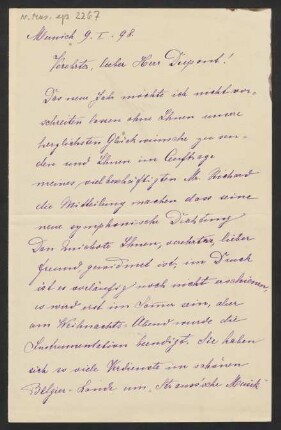 N. Mus. ep. 2267
Munich 9. I. 98.
Verehrter, lieber Herr Dupont!
Das neue Jahr möchte ich nicht vor-
schreiten lassen ohne Ihnen unsere
herzlichsten Glückwünsche zu sen-
den und Ihnen im Auftrage
meines vielbeschäftigten Mr. Richard
die Mitteilung machen dass seine
neue symphonische Dichtung
Don Quichote Ihnen, verehrter, lieber
Freund gewidmet ist; im Druck
ist es vorläufig noch nicht erschienen,
es wird erst im Sommer sein, aber
am Weihnachts-Abend wurde die
Instrumentation beendigt. Sie haben
sich so viele Verdienste im schönen
Belgier-Lande um „Strauss'sche Musik"